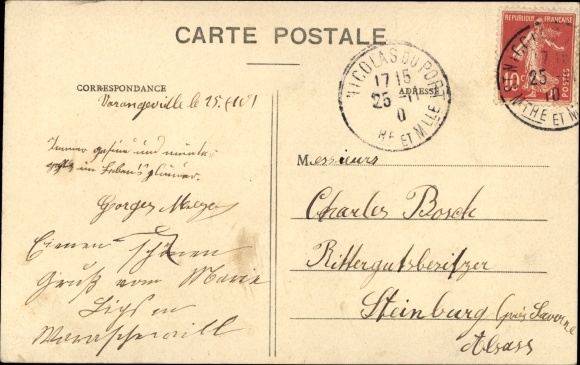 CARTE POSTALE
CORRESPONDANCE
ADRESSE
Varangeville le 25
Immer gesund und munter
im Lebens
Georges
Einen schönen
Gruß vom
NICOLAS DU PORT
17 15
25 -11
0
HE ET MLLE
REPUBLIQUE FRANÇAISE
10c
POSTES
25
10
THE ET M
Messieurs
Charles Bosch
Rittergutsbesitzer
Steinburg (près Saverne
Alsass